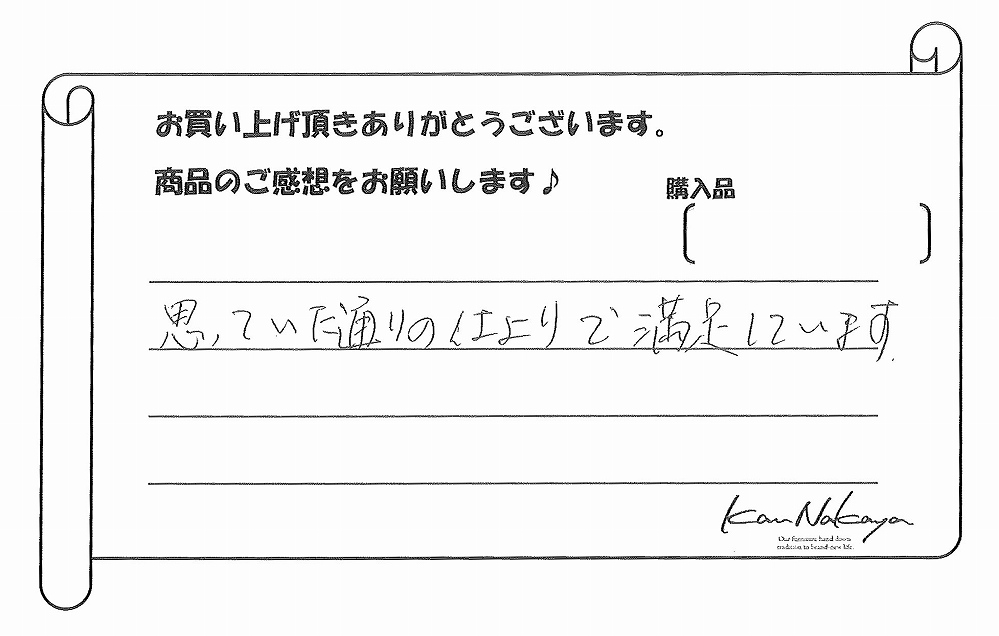 お買い上げ頂きありがとうございます。
商品のご感想をお願いします♪
購入品
思っていた通りの仕上りで満足しています.
Kan Nakaya
Our furniture hand down
tradition to brand-new life.